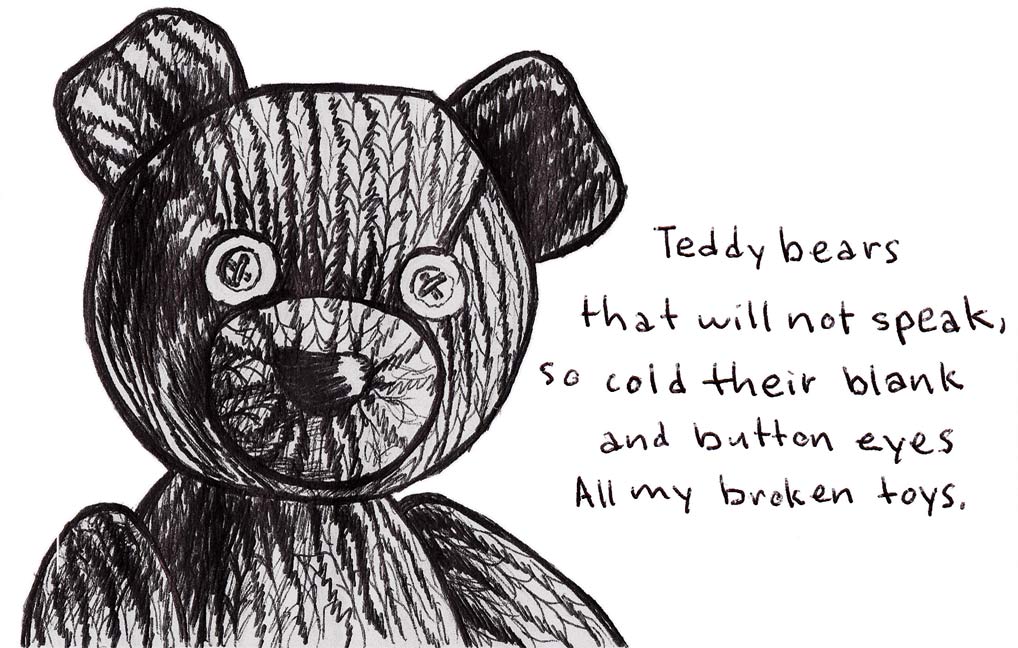 Teddy bears
that will not speak,
so cold their blank
and button eyes
All my broken toys.